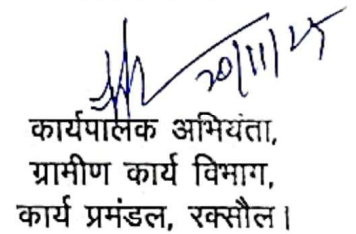 20/11/25
कार्यपालक अभियंता,
ग्रामीण कार्य विभाग,
कार्य प्रमंडल, रक्सौल।